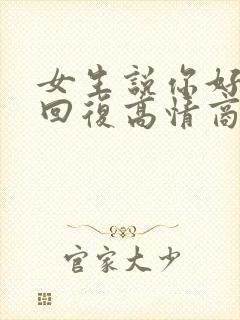 女生説你好
回復高情商
官家大少